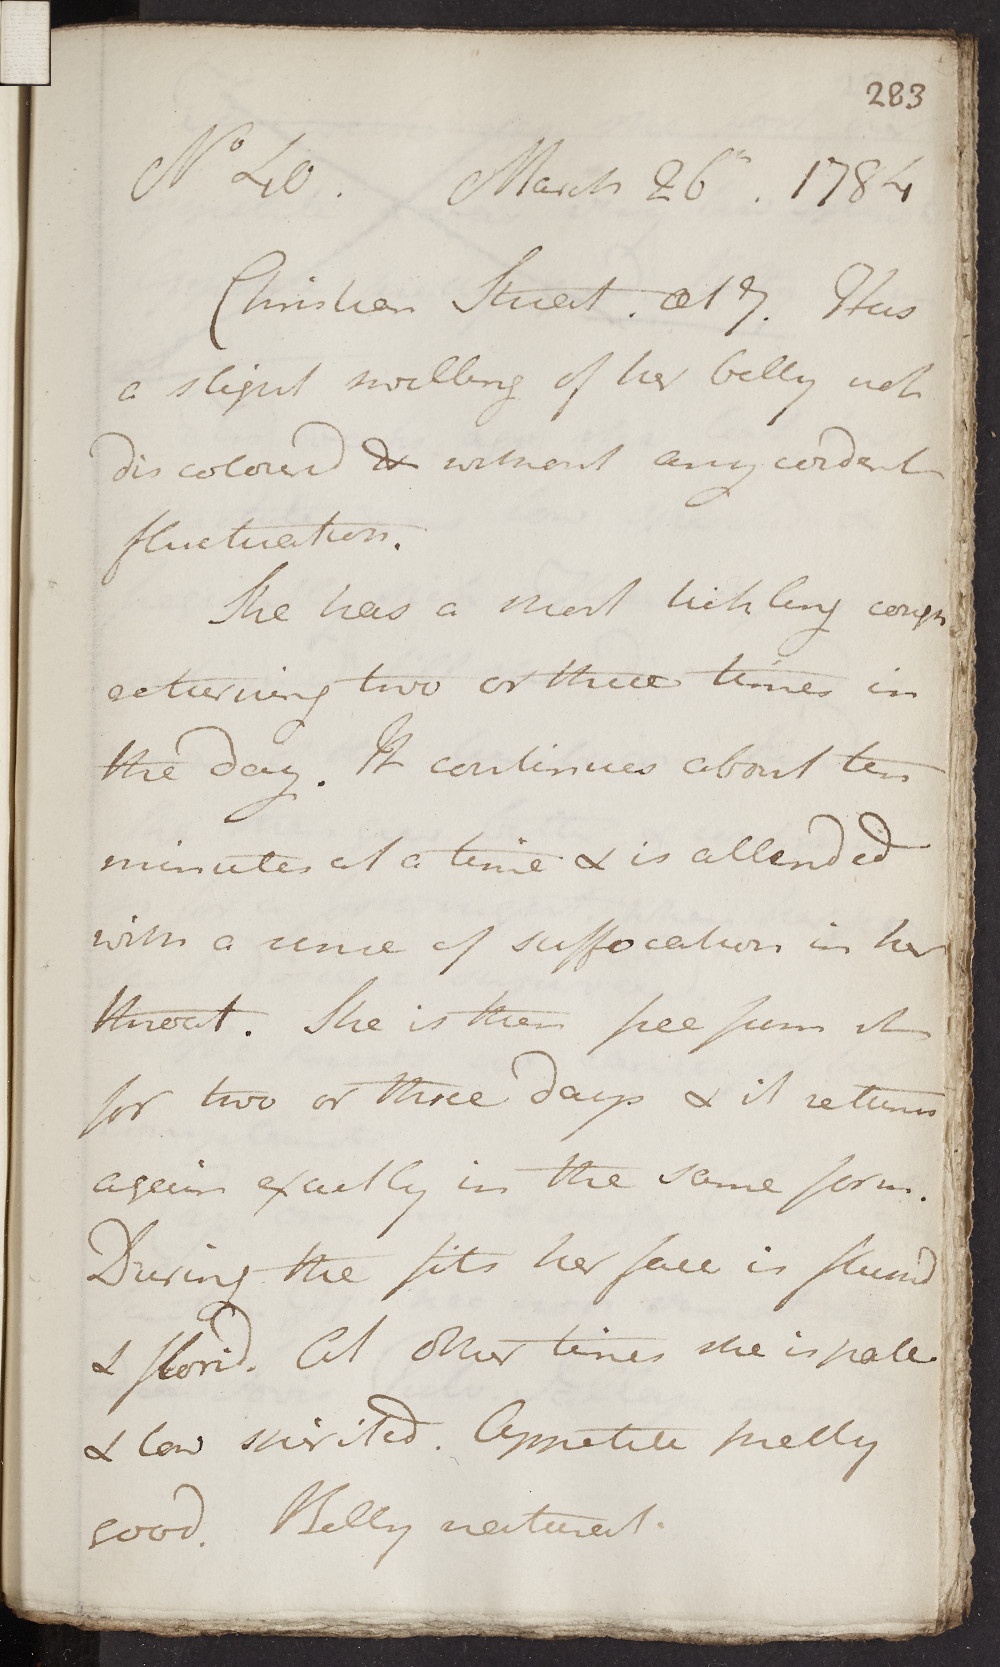 283
No 40. March 26th. 1784
Christian Stuart. æt 17. Has
a slight swelling of her belly not
discoloured & without any evident
fluctuation.
She has a short tickling cough
returning two or three times in
the day. It continues about ten
minutes at a time & is attended
with a sense of suffocation in her
throat. She is then free from it
for two or three days & it returns
again exactly in the same form.
During the fits her face is flushd
& florid. At other times she is pale
& low spirited. Appetite pretty
good. Belly natural.